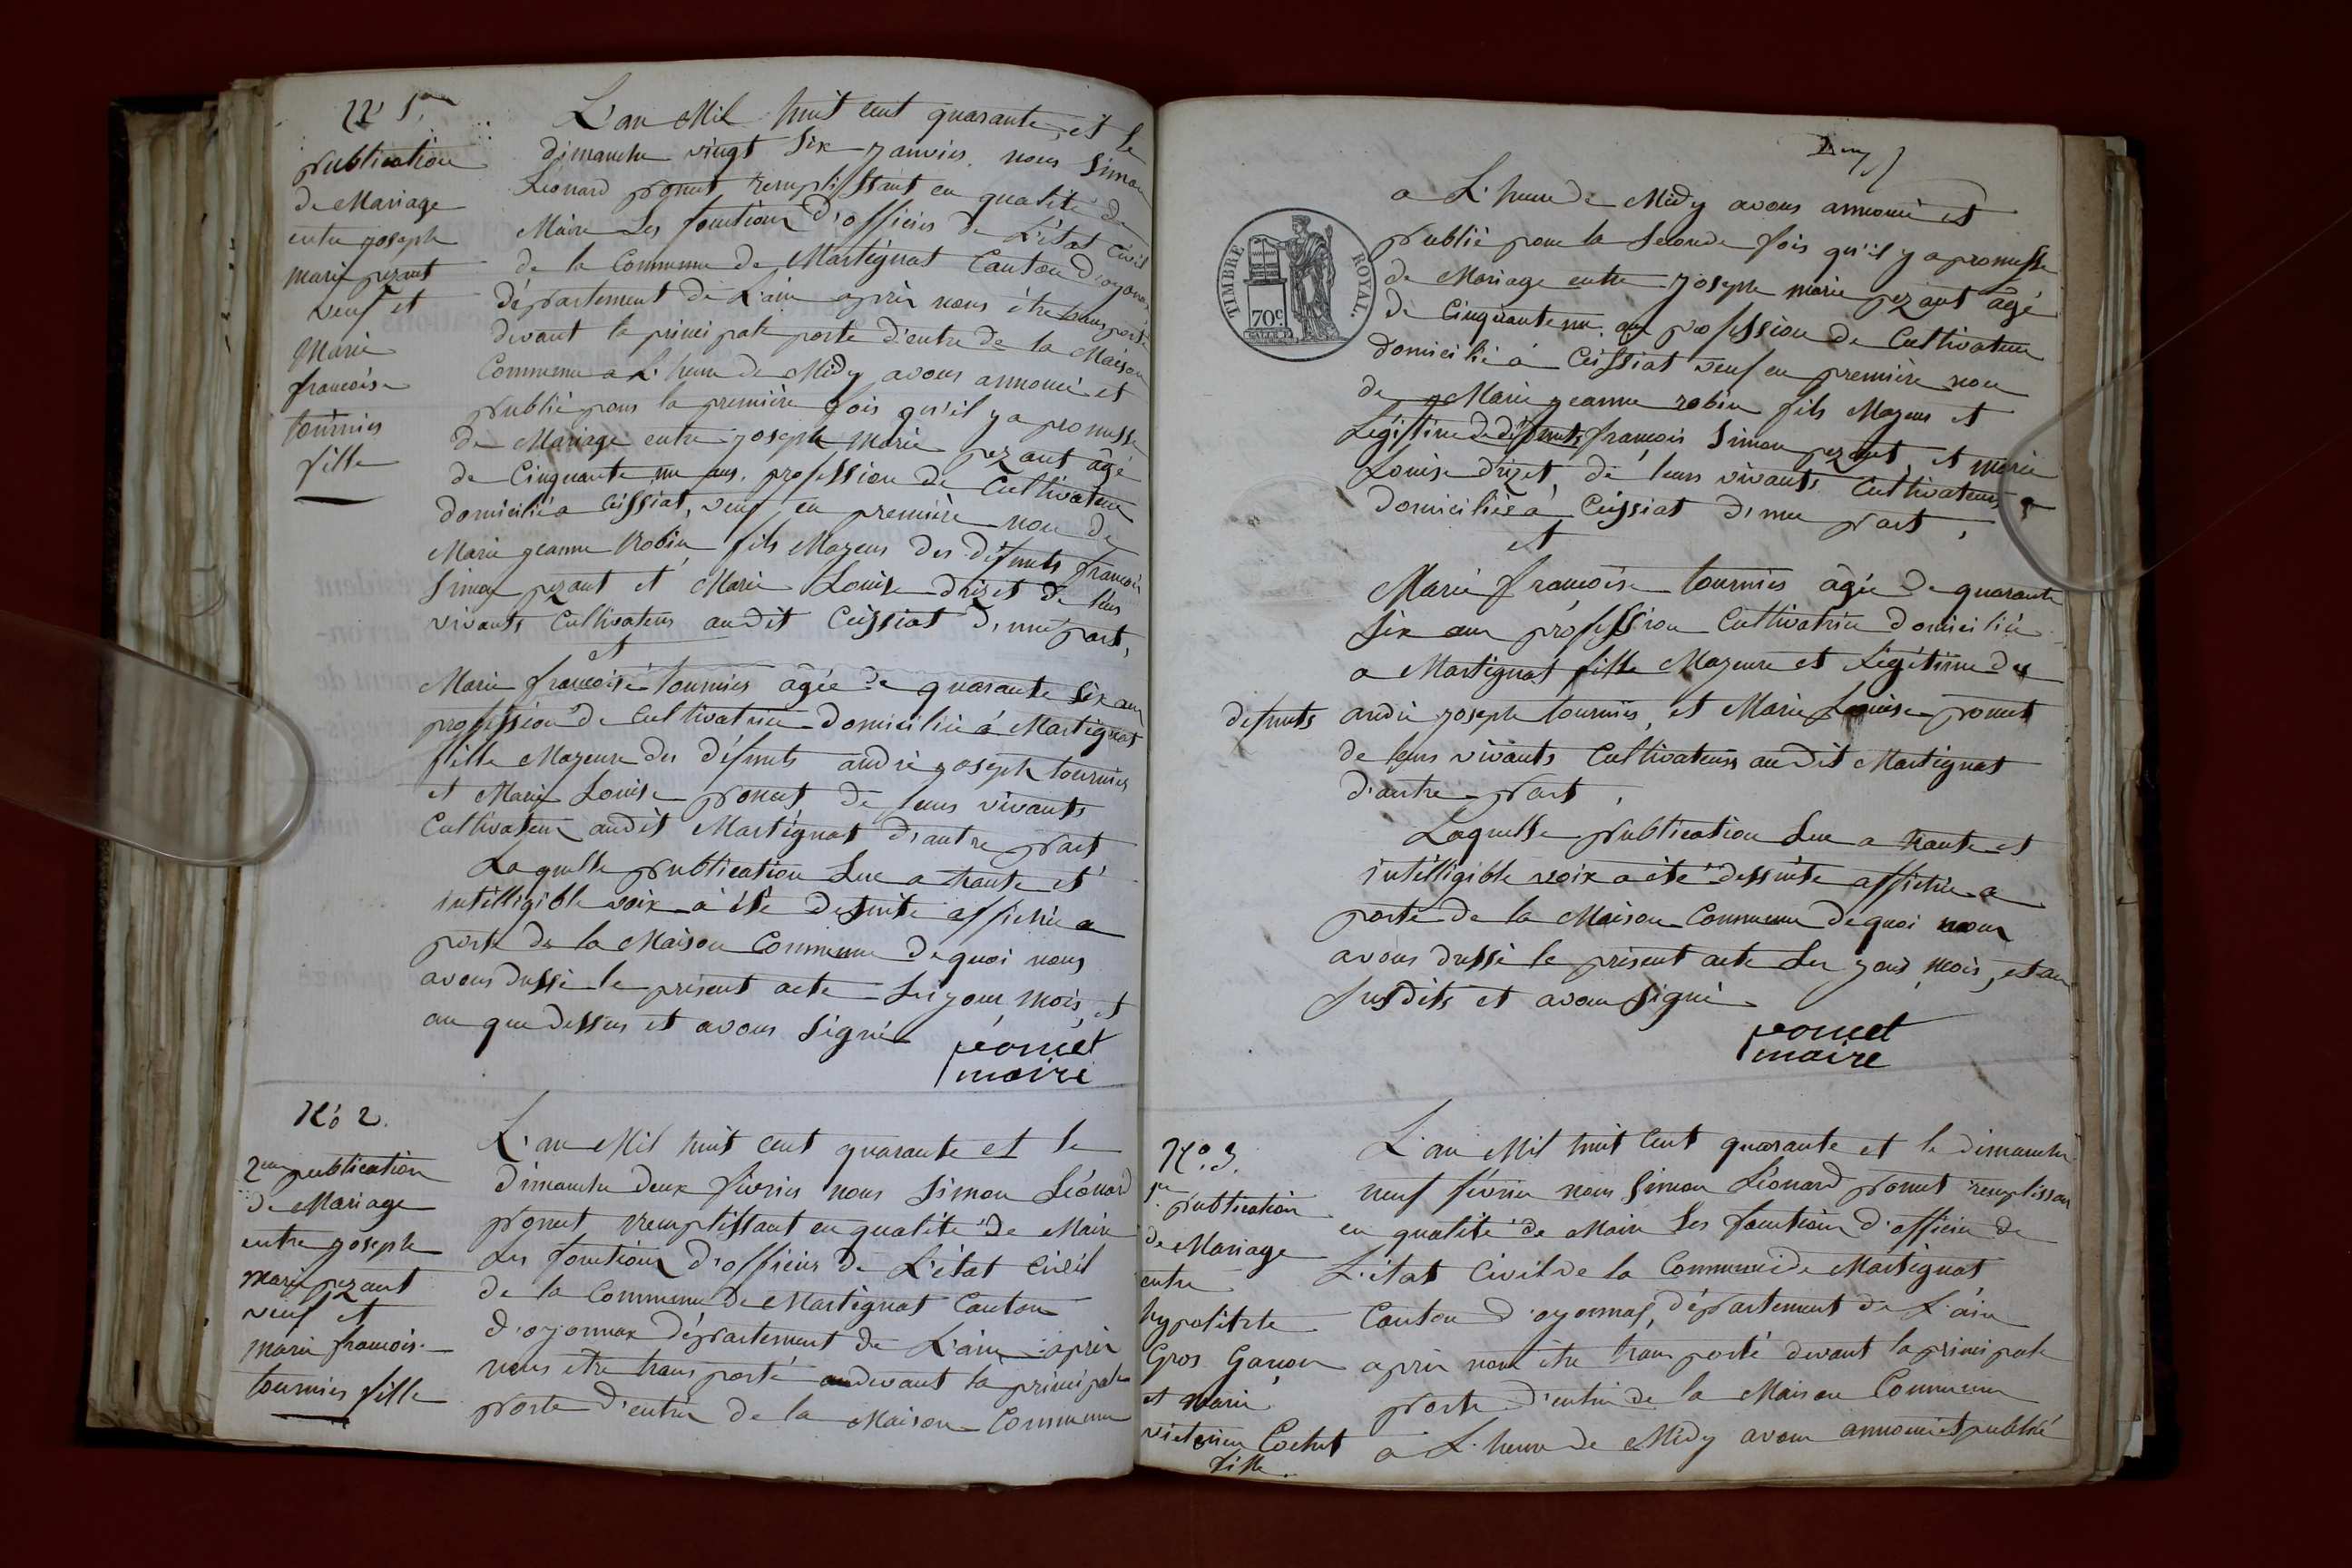 N° 1er
publication
de Mariage
entre joseph
marie pezant
veuf et
Marie
francoise
tournier
fille
L'an Mil huit cent quarante et le
dimanche vingt six janvier nous Simon
Léonard poncet remplissant en qualité de
Maire Les fonctions d'officier de L'état Civil
de la Commune de Martignat Canton d'oyonnax
département de L'ain après nous être transporté
devant la principale porte d'entré de la Maison
Commune a L'heure de Midy avons annoncé et
publié pour la première fois qu'il y a promesse
de Mariage entre joseph marie pezant âgé
de Cinquante un ans, profession de Cultivateur
domicilié a Ceissiat, veuf en première noce de
Marie jeanne Robin fils Mageur des défunts francois
Simon pezant et Marie Louise drizet de leurs
vivants Cultivateurs audit Ceissiat d'une part,
et
Marie francoise tournier agée de quarante six ans
profession de Cultivatrice domiciliée à Martignat
fille Mageure des défunts andré joseph tournier
et Marie Louise poncet de leurs vivants
Cultivateurs audit Martignat d'autre part
Laquelle publication Lue a haute et
intélligible voix à été desuite affichée a
porte de la Maison Commune de quoi nous
avons dressé le présent acte Les jour, mois, et
an que dessus et avons Signé
poncet
maire
N° 2.
2me publication
de Mariage
entre joseph
marie pezant
veuf et
marie francoise
tournier fille
L'an Mil huit cent quarante et le
dimanche deux fevrier nous Simon Léonard
poncet remplissant en qualité de Maire
Les fonctions d'officier de L'état Civil
de la Commune de Martignat Canton
d'oyonnax département de L'ain après
nous être transporté audevant la principale
porte d'entrée de la Maison Commune
Deux
TIMBRE ROYAL.
70c.
a L'heure de Midy avons annoncé et
publié pour la Seconde fois qu'il y a promesse
de Mariage entre joseph marie pezant âgé
de Cinquante un ans profession de Cultivateur
domicilié à Ceissiat veuf en première noce
de Marie jeanne robin fils Mageur et
Légitime de défunts françois Simon pezant, et marie
Louise drizet, de leurs vivants Cultivateurs
domiciliés à Ceissiat d'une part,
et
Marie françoise tournier agée de quarante
six ans profession Cultivatrice domiciliée
a Martignat fille Mageure et Légitime des
defunts
andré joseph tournier, et Marie Louise poncet
de leurs vivants Cultivateurs audit Martignat
d'autre part,
Laquelle publication Lue a haute et
intélligible voix a été dessuite affichée a
porte de la Maison Commune de quoi nous
avons dressé le présent acte Les jour, mois, et an
Susdits et avons Signé
poncet
maire
N°. 3.
1re publication
de Mariage
entre
hypolithe
Gros Garçon
et marie
victorine Cochet
fille.
L'an Mil huit Cent quarante et le dimanche
neuf février nous Simon Léonard poncet remplissant
en qualité de Maire Les fonctions d'officier de
L'état Civil de la Commune de Martignat
Canton d'oyonnax, département de L'ain
après nous être transporté devant la principale
porte d'entrée de la Maison Commune
a L'heure de Midy avons annoncé et publié